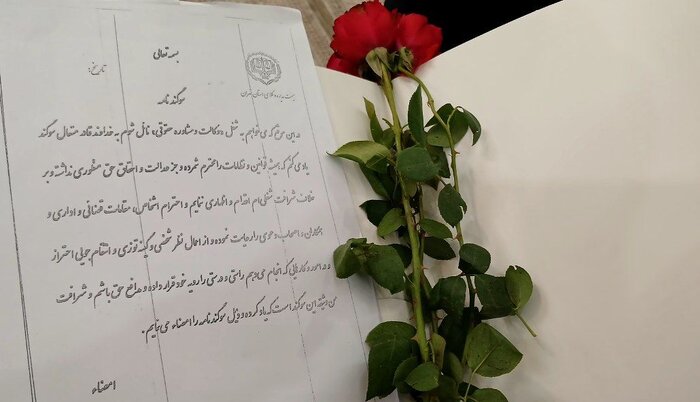 بسمه تعالی
تاریخ:
سوگندنامه
در این موقع که می‌خواهم به شغل وکالت و مشاوره حقوقی، نائل شوم به خداوند قادر متعال سوگند
یاد می کنم که همیشه قوانین و نظامات را محترم شمرده و جز عدالت و احقاق حق منظوری نداشته و بر
خلاف شرافت شغلی ام اقدام و اظهاری ننمایم و احترام اشخاص، مقامات قضائی و اداری و
همکاران و اصحاب دعوی را رعایت نموده و از اعمال نظر شخصی و کینه توزی و انتقام جویی احتراز
و در امور و کارهایی که انجام می‌دهم راستی و درستی را رویه خود قرار داده و مدافع حق باشم و شرافت
من وثیقه این سوگند است که یاد کرده و ذیل سوگند نامه را امضاء می نمایم.
امضاء